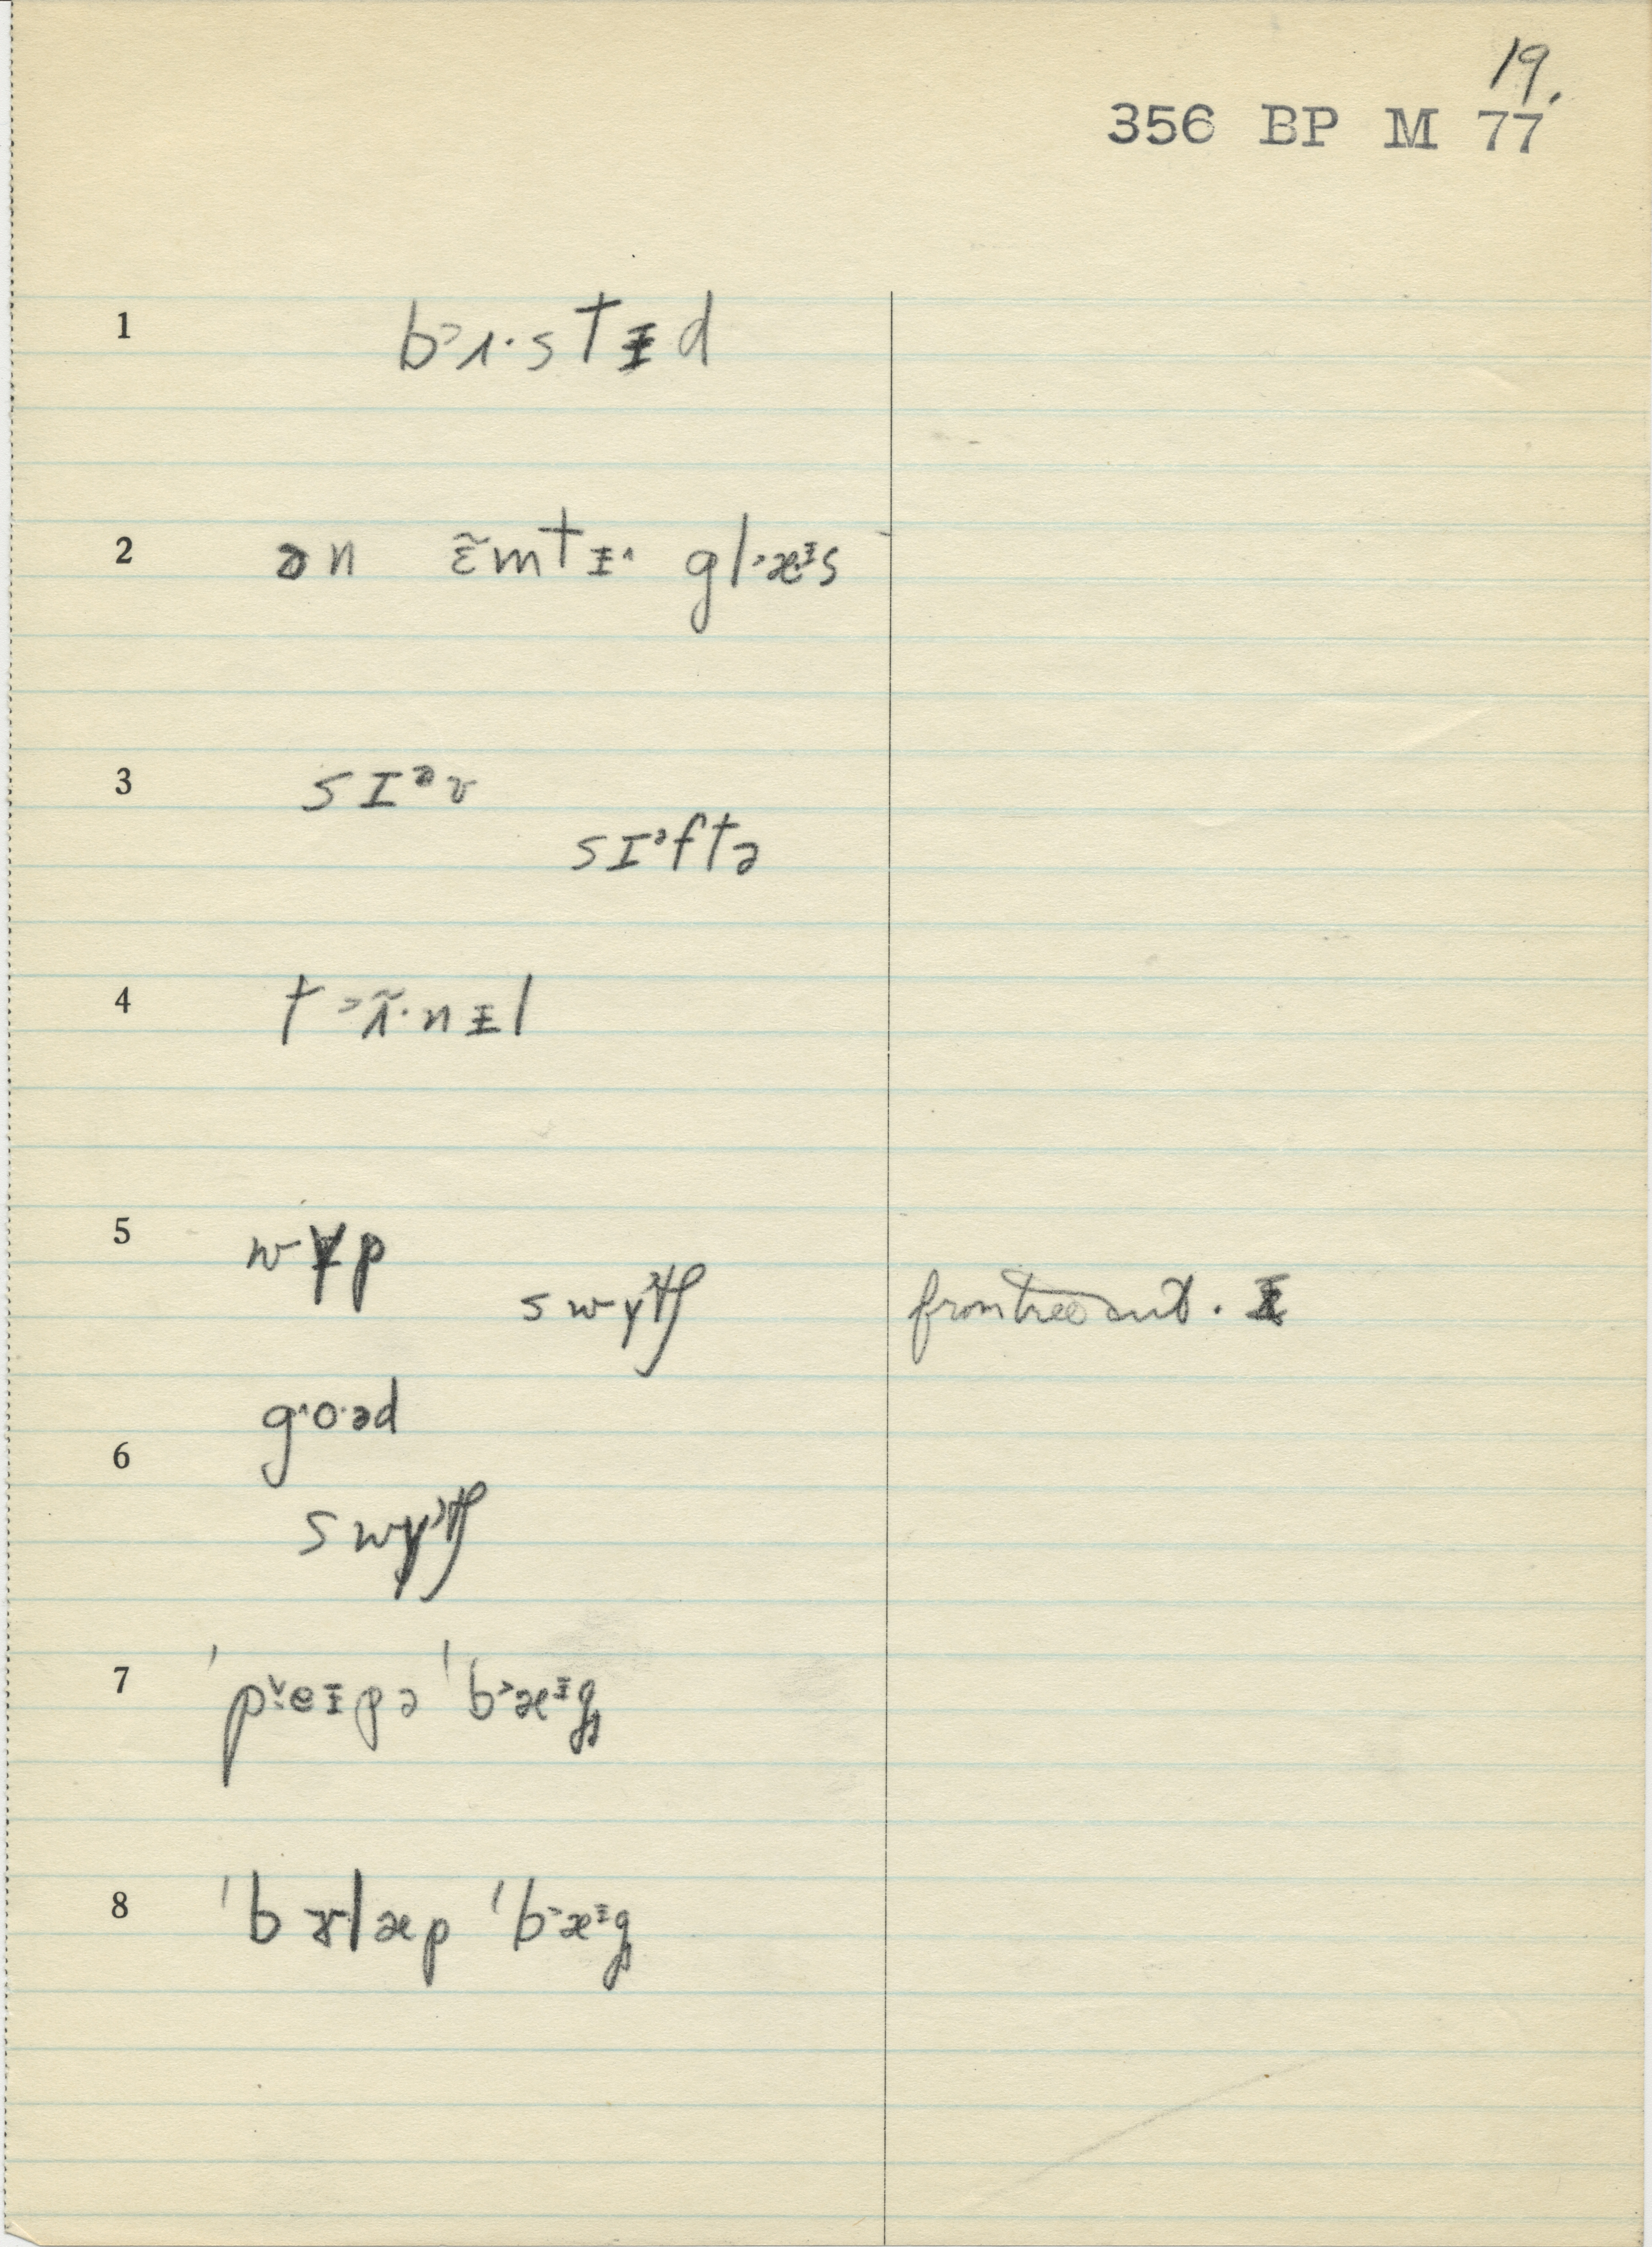 19.
356 BP M 77
1 b˃ʌ·stɪ̵d
2 ən ɛ̃mtɪ̵˔ gl˃æᵻs
3 sɪᵊv
sɪᵊftə
4 t˃ʌ̃·nɪ̵l
5 wɪ̵p
swɣtʃ from tree
go·əd
6
swɣtʃ
7 ˈp˅eɪ̵pə ˈb˃æᵻg̥
8 ˈbɤlæp ˈb˃æᵻg̥